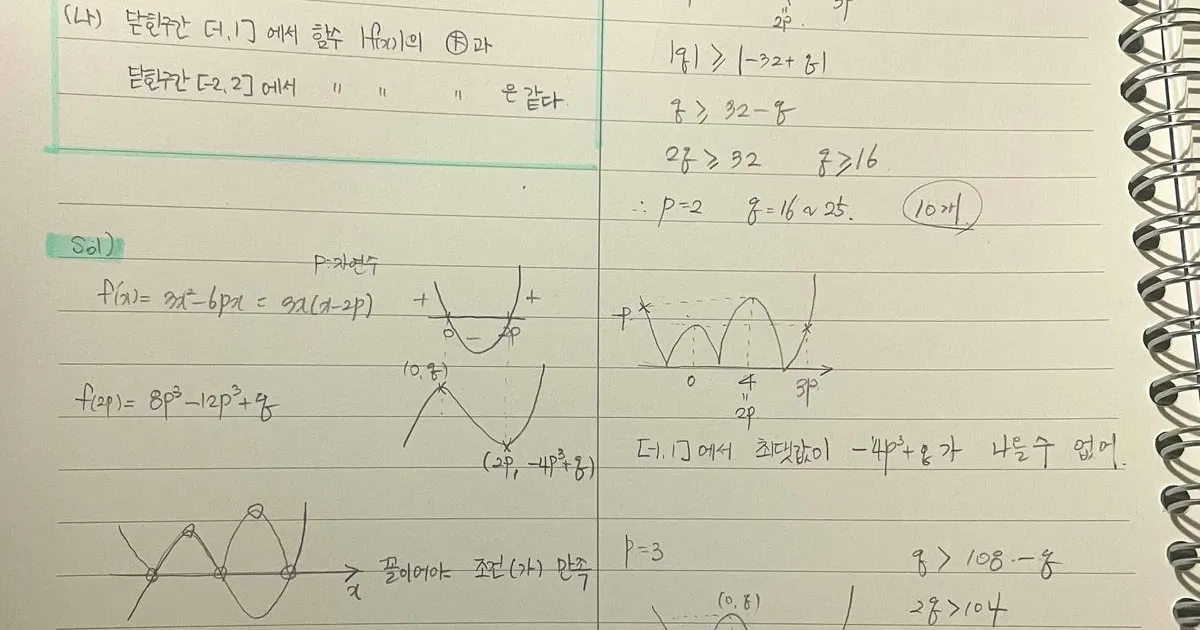 (나) 닫힌구간 [-1, 1]에서 함수 |f(x)|의 과
닫힌구간 [-2, 2]에서 〃 〃 〃 은 같다.
Sol)
P:자연수
f(x)= 3x²-6px = 3x(x-2p)
+ - +
0 2p
(0, q)
f(2p)= 8p³-12p³+q
(2p, -4p³+q)
x
꼴이어야 조건(가) 만족
2p 3p
|q| ≥ |-32+q|
q ≥ 32-q
2q ≥ 32 q ≥ 16
∴ p=2 q=16~25. 10개
-p
0 4 3p
〃
2p
[-1, 1]에서 최댓값이 -4p³+q가 나올수 없어.
p=3 q > 108-q
2q > 104
(0, q)